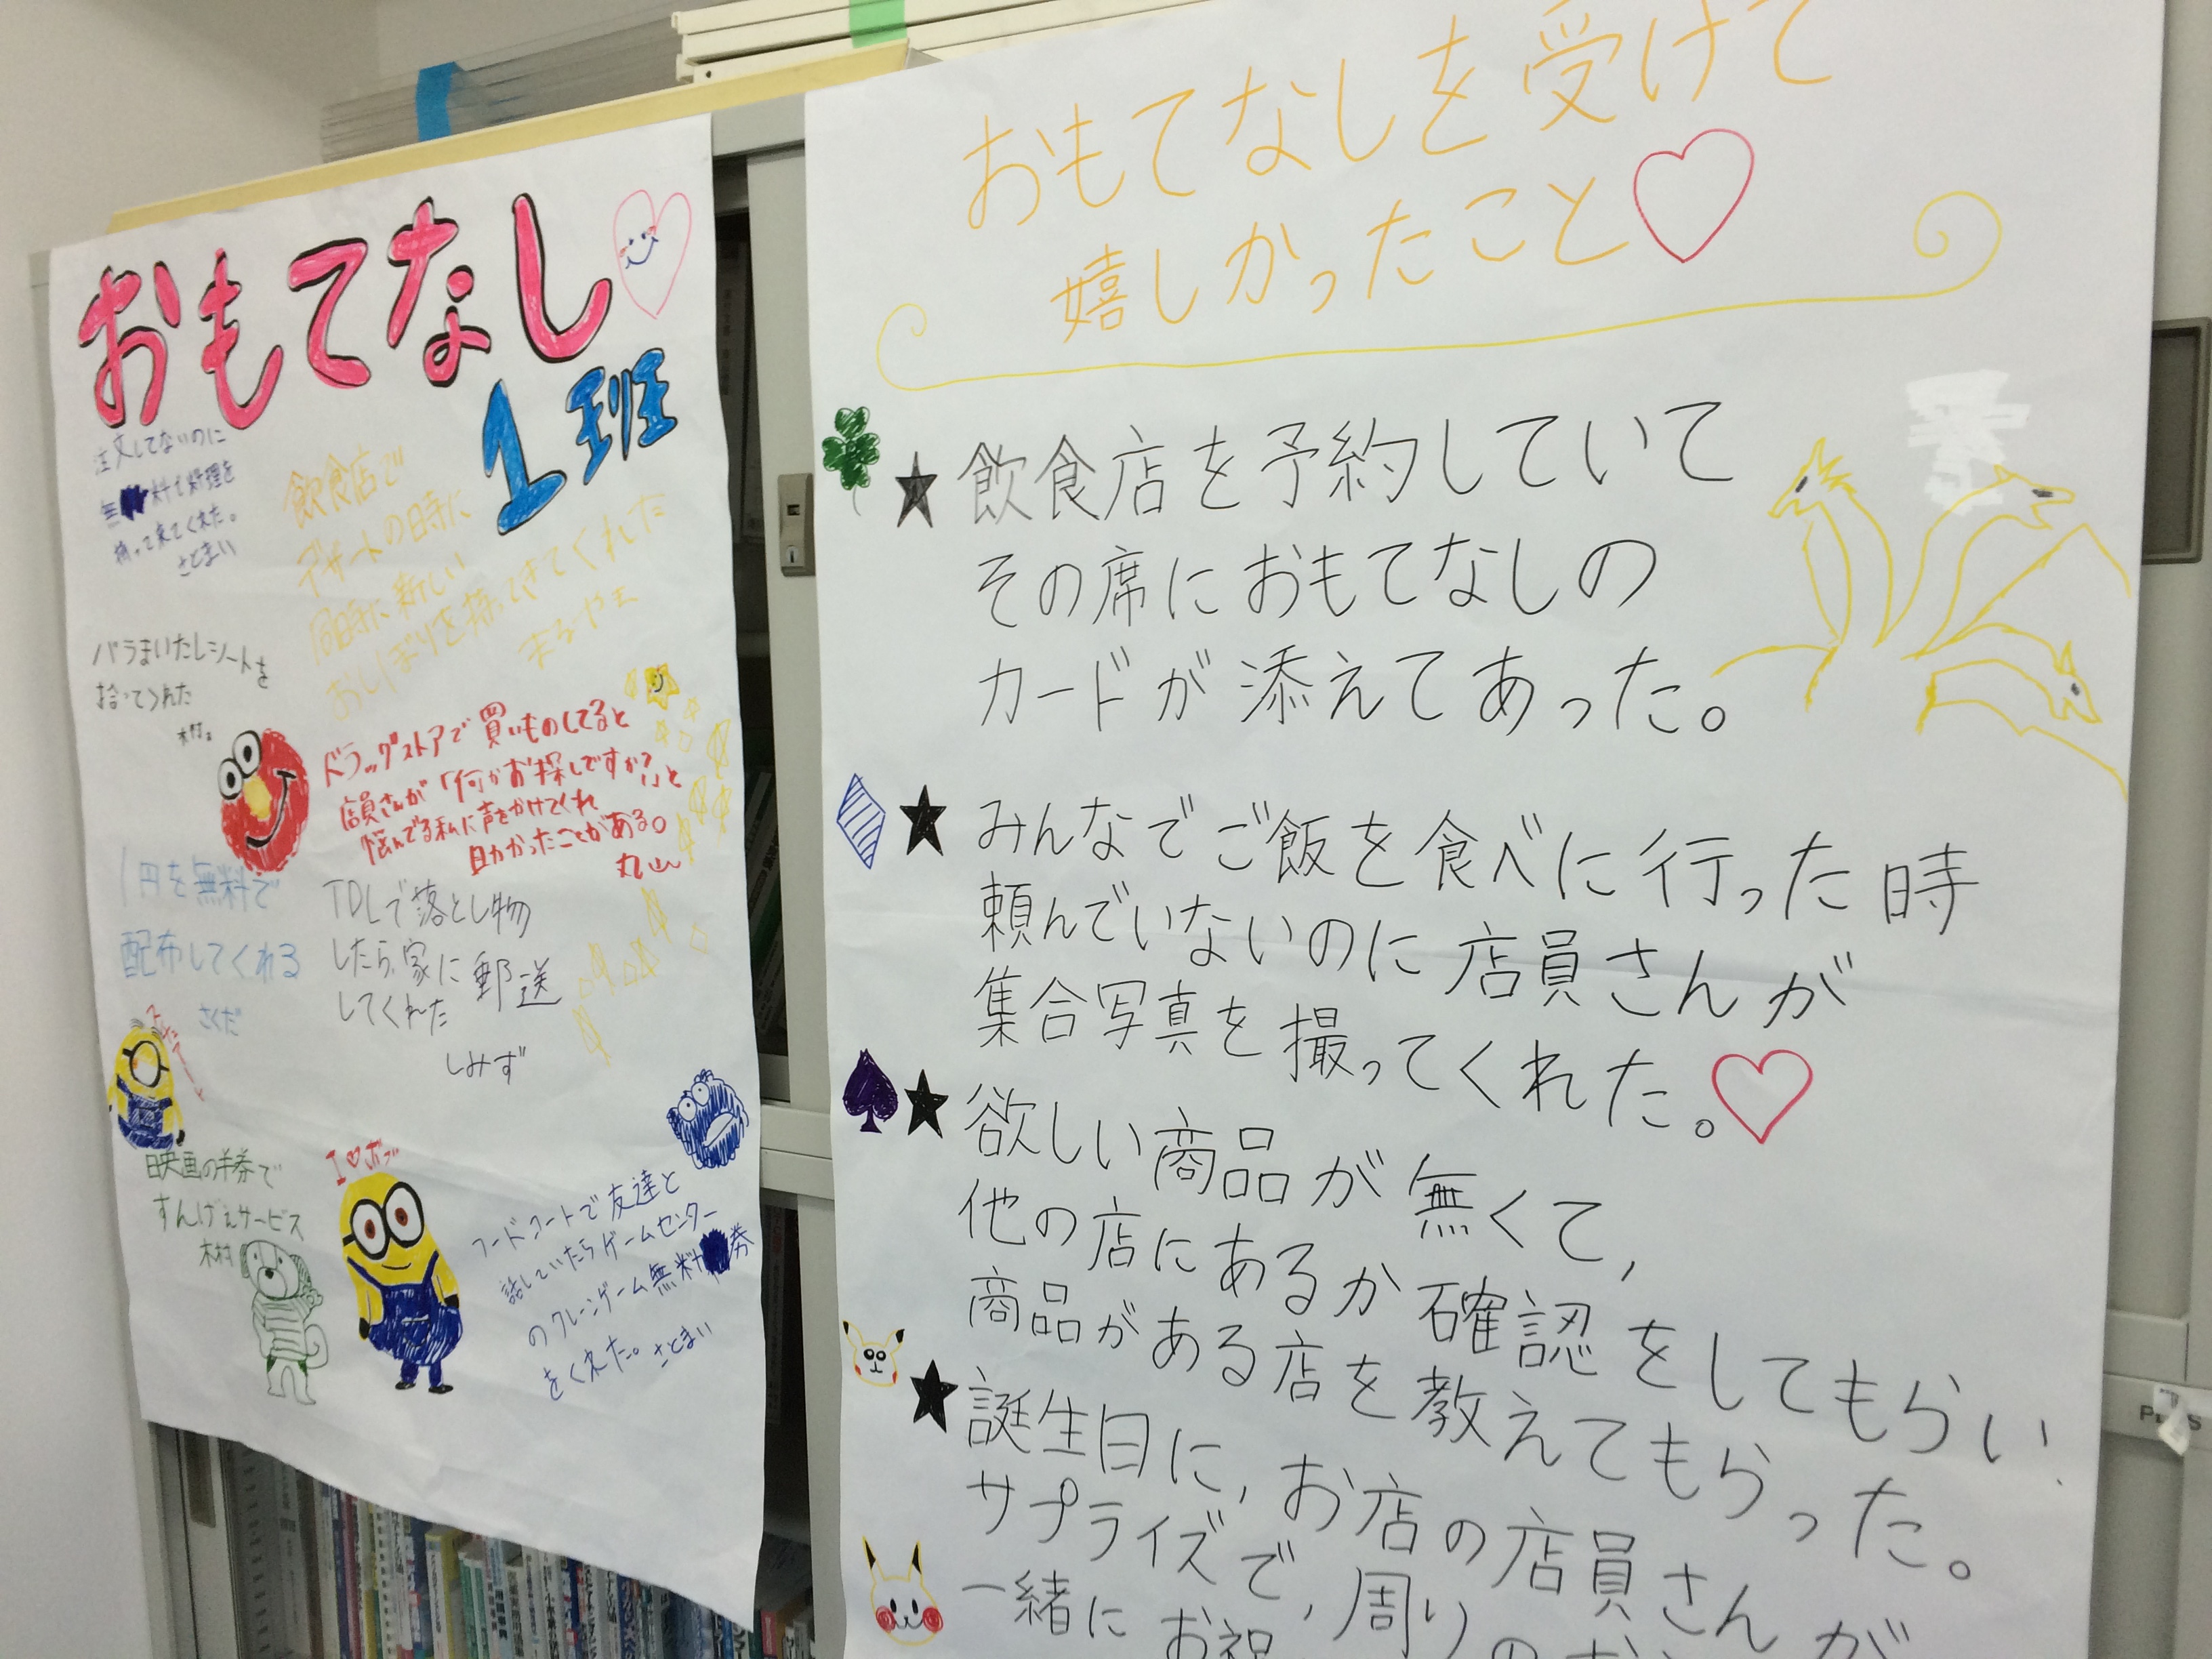 おもてなし
1班
注文してないのに
無料で料理を
持って来てくれた。
さとまい
飲食店で
デザートの時に
同時に新しい
おしぼりを持ってきてくれた
まるやま
バラまいたレシートを
拾ってくれた
木村。
ドラッグストアで買いものしてると
店員さんが「何かお探しですか?」と
悩んでる私に声をかけてくれ
助かったことがある。
丸山
1円を無料で
配布してくれる
さくだ
TDLで落とし物
したら、家に郵送
してくれた
しみず
映画の半券で
すんげぇサービス
木村
I♡ボブ
フードコートで友達と
話していたらゲームセンター
のクレーンゲーム無料券
をくれた。さとまい
おもてなしを受けて
嬉しかったこと♡
★飲食店を予約していて
その席におもてなしの
カードが添えてあった。
★みんなでご飯を食べに行った時
頼んでいないのに店員さんが
集合写真を撮ってくれた。♡
★欲しい商品が無くて,
他の店にあるか確認をしてもらい、
商品がある店を教えてもらった。
★誕生日に,お店の店員さんが
サプライズで,周りの
一緒にお祝
PLUS